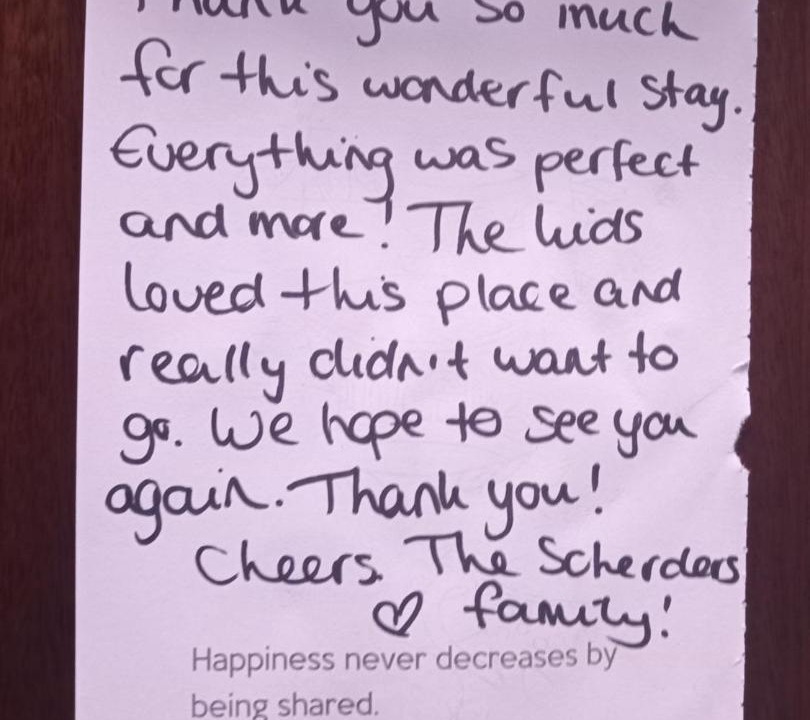 Thank you so much
for this wonderful stay.
Everything was perfect
and more! The kids
loved this place and
really didn't want to
go. We hope to see you
again. Thank you!
Cheers. The Scherders
♡ family!
Happiness never decreases by
being shared.